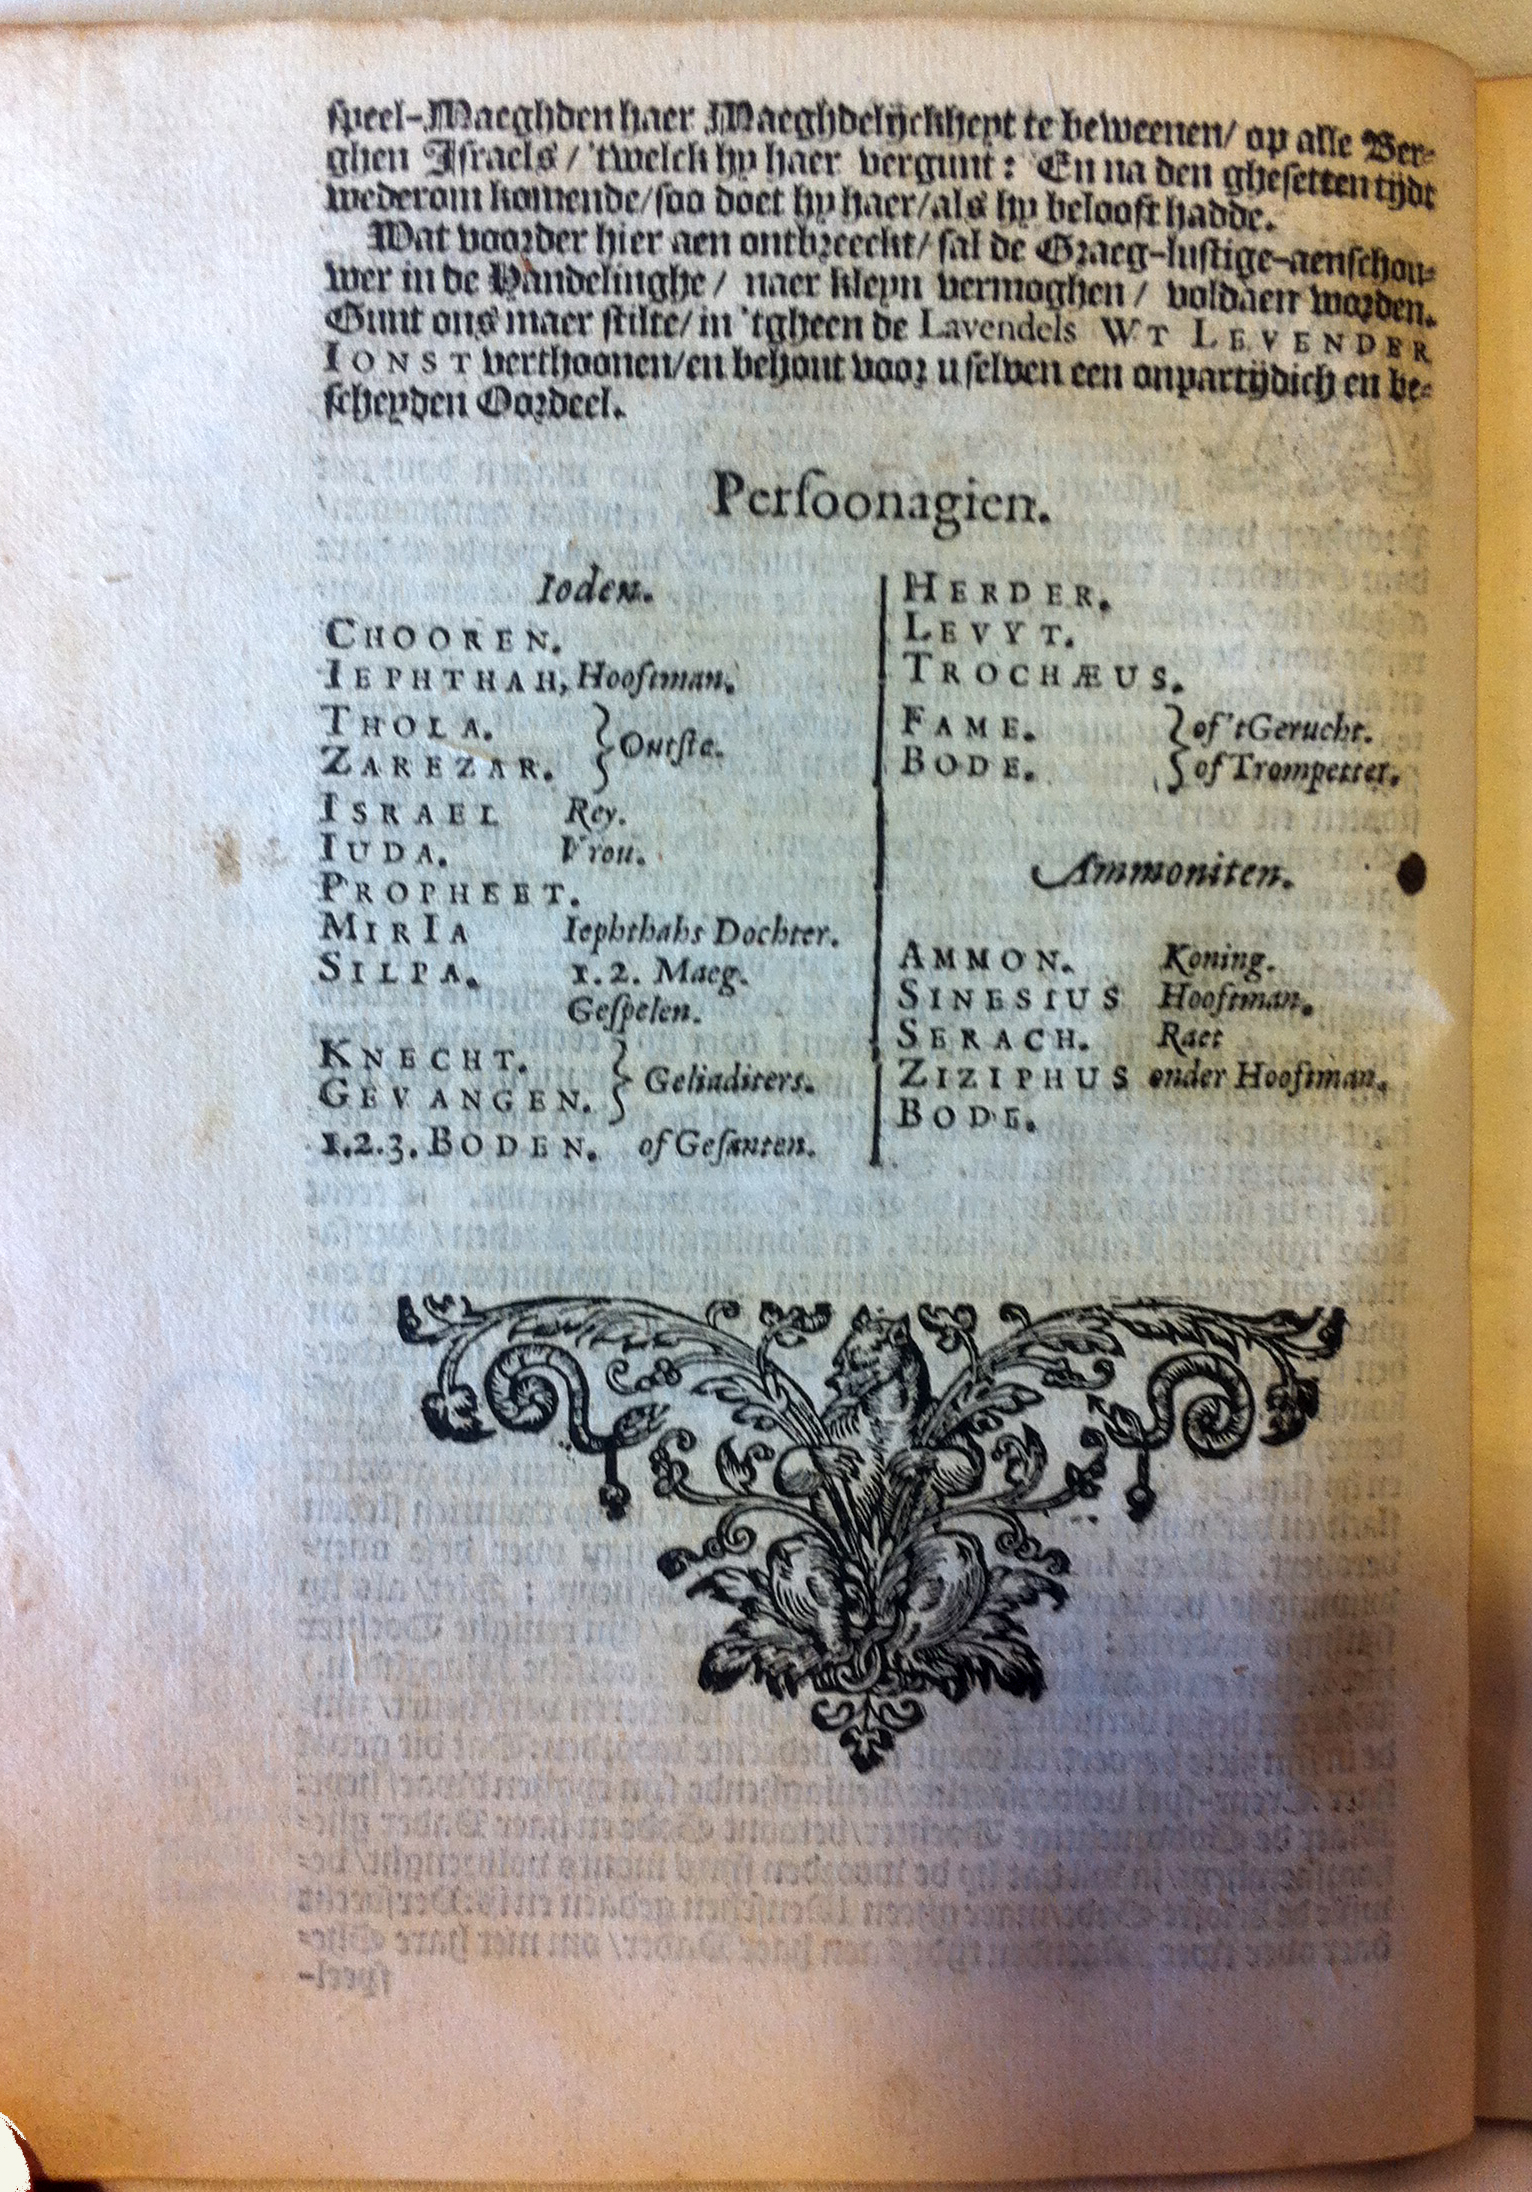 speel-Maeghden haer Maeghdelijckheyt te beweenen/ op alle Ber-
ghen Israels / 'twelck hy haer vergunt: En na den ghesetten tijdt
wederom komende/soo doet hy haer/als hy belooft hadde.
Wat voorder hier aen ontbreeckt/ sal de Graeg-lustige-aenschou-
wer in de Handelinghe / naer kleyn vermoghen / voldaen worden.
Gunt ons maer stilte/ in 'tgheen de Lavendels WT LEVENDER
IONST verthoonen/en behout voor u selven een onpartijdich en be-
scheyden Oordeel.
Persoonagien.
Ioden.
CHOOREN.
IEPHTHAH, Hooftman.
THOLA.
ZAREZAR. } Outste.
ISRAEL Rey.
IUDA. Vrou.
PROPHEET.
MIRIA Iephthahs Dochter.
SILPA. 1.2. Maeg.
Gespelen.
KNECHT.
GEVANGEN. } Geliaditers.
1.2.3. BODEN. of Gesanten.
HERDER.
LEVYT.
TROCHÆUS.
FAME. } of 'tGerucht.
BODE. of Trompetter.
Ammoniten.
AMMON. Koning.
SINESIUS Hooftman.
SERACH. Raet
ZIZIPHUS onder Hooftman.
BODE.